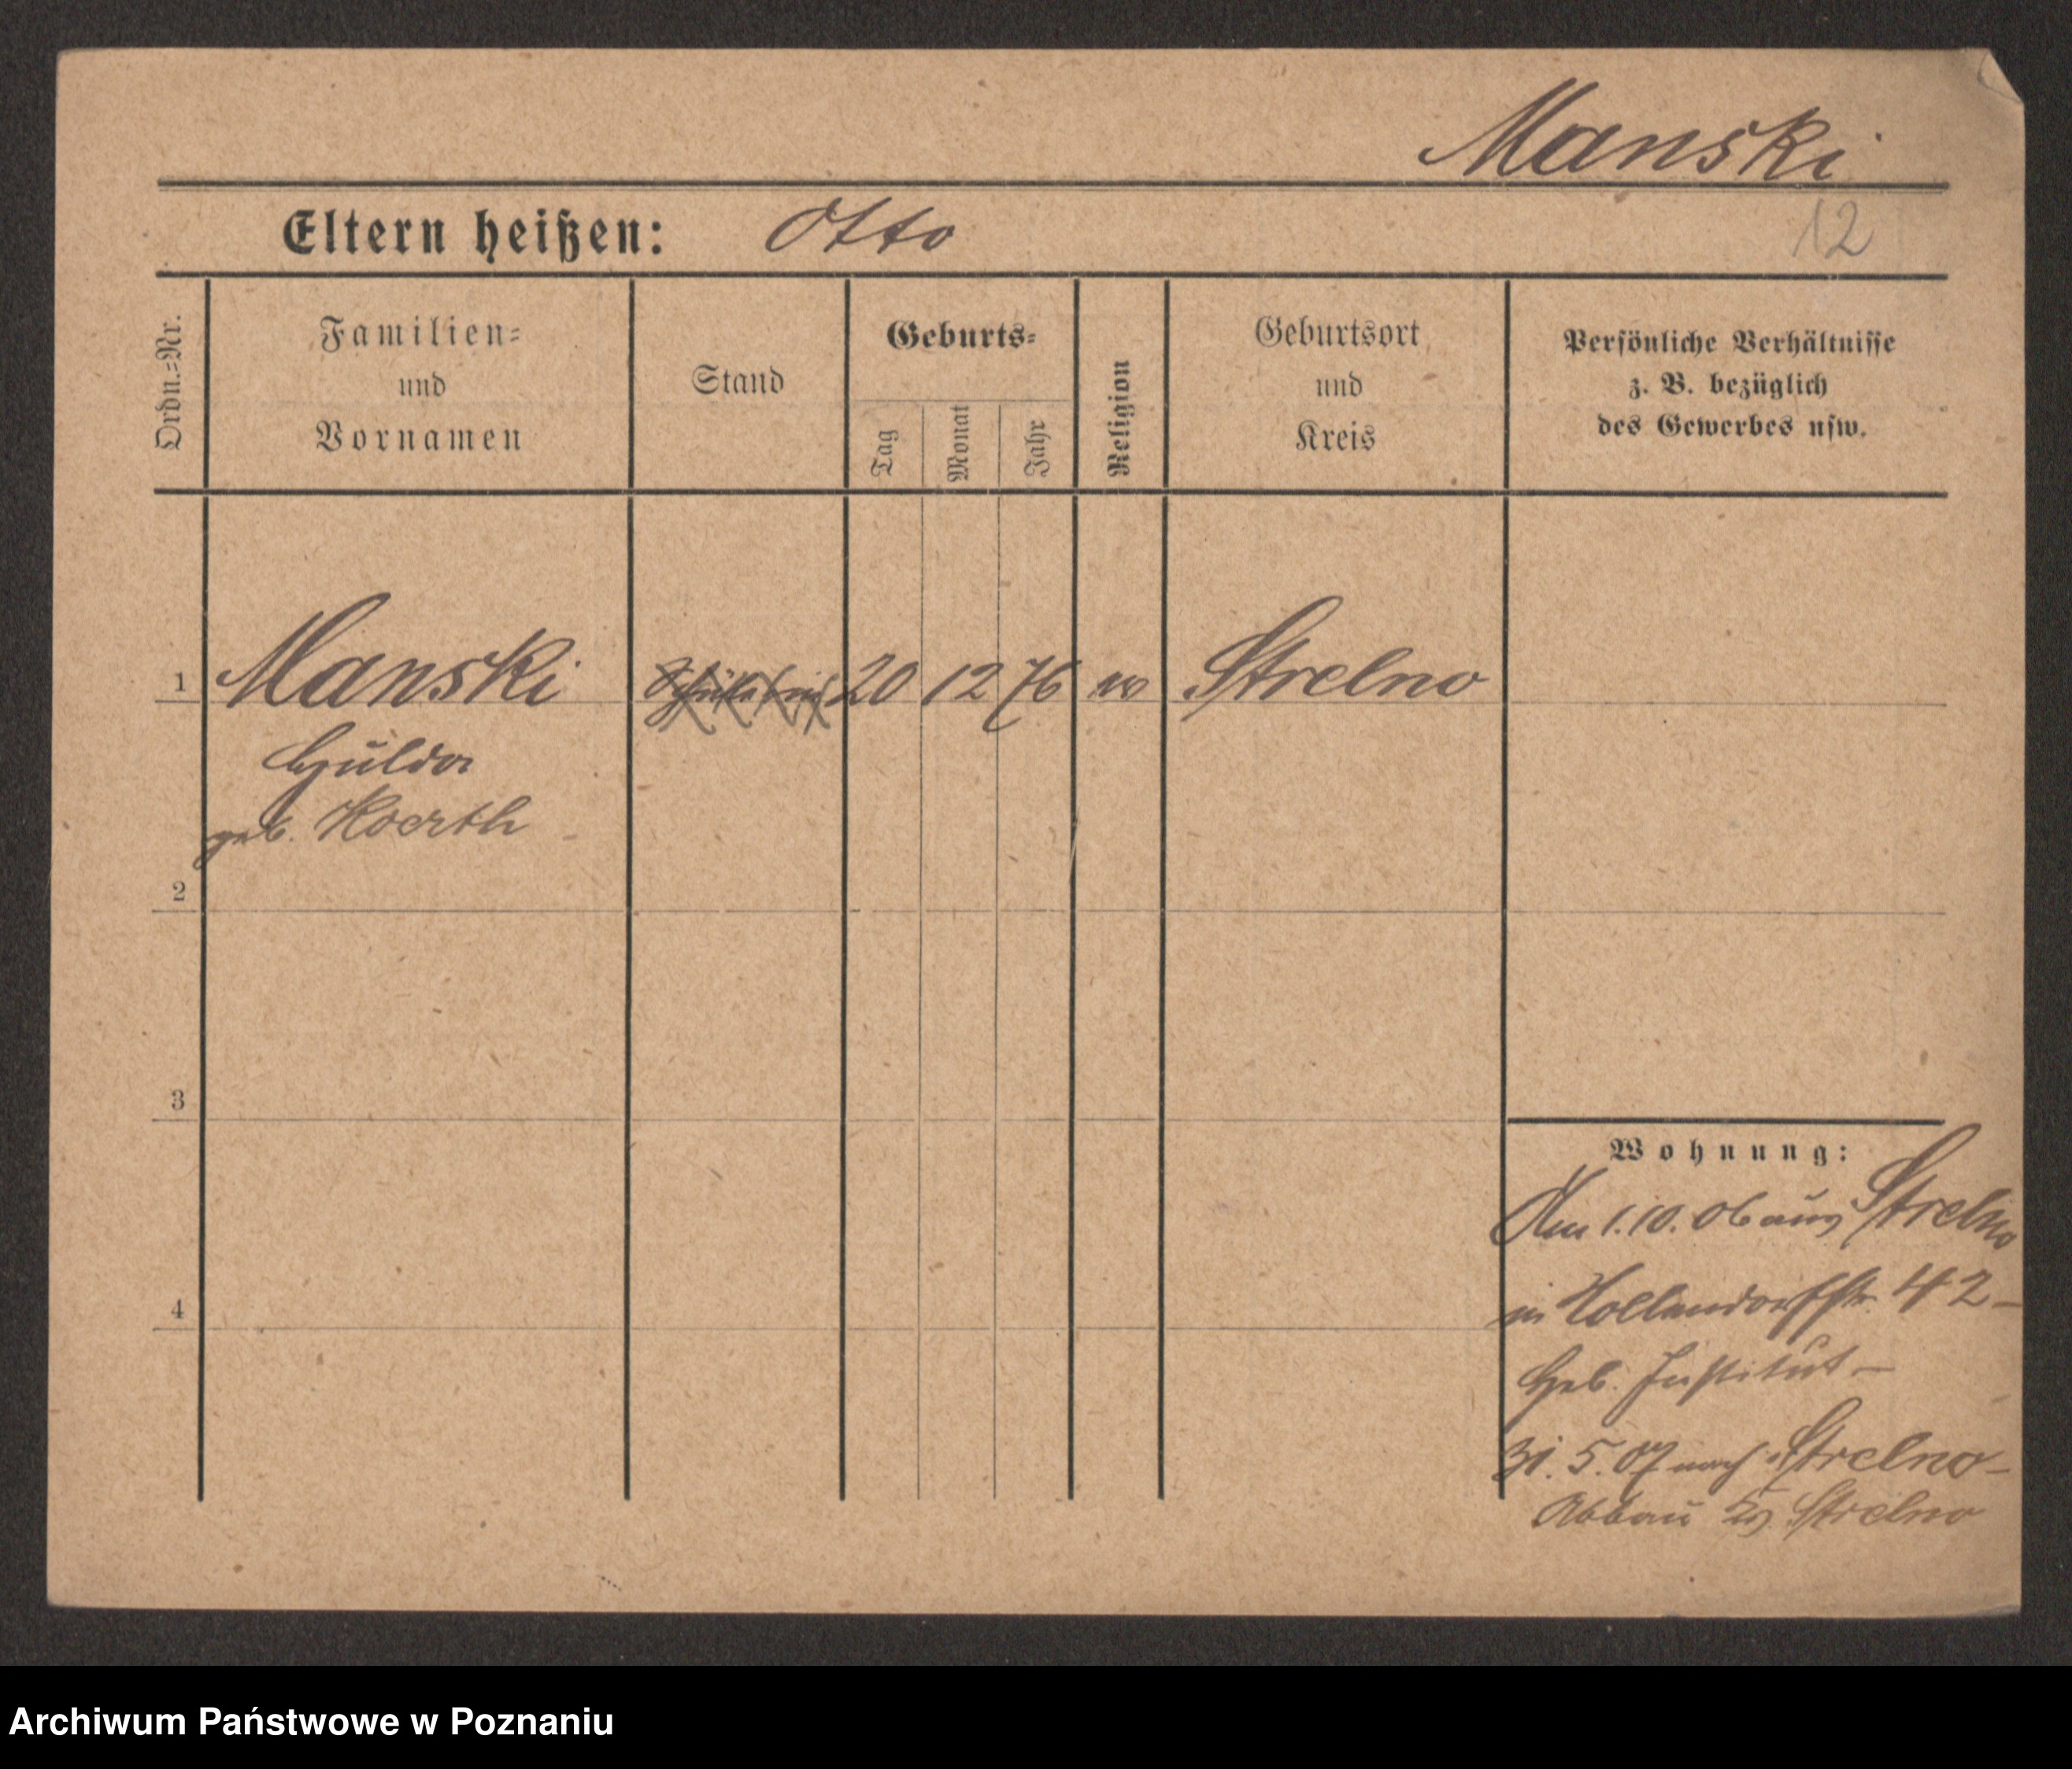 Manski
Eltern heißen: Otto
12
Ordn.-Nr.
Familien-
und
Vornamen
Stand
Geburts-
Tag
Monat
Jahr
Religion
Geburtsort
und
Kreis
Persönliche Verhältnisse
z. B. bezüglich
des Gewerbes usw.
1 Manski Schülerin 20 12 76 ev Strelno
Hulda
geb. Koerth
2
3
4
Wohnung:
Am 1.10.06 aus Strelno
in 42-
Heb. Institut-
31.5.07 nach Strelno-
Abbau Kr. Strelno
Archiwum Państwowe w Poznaniu